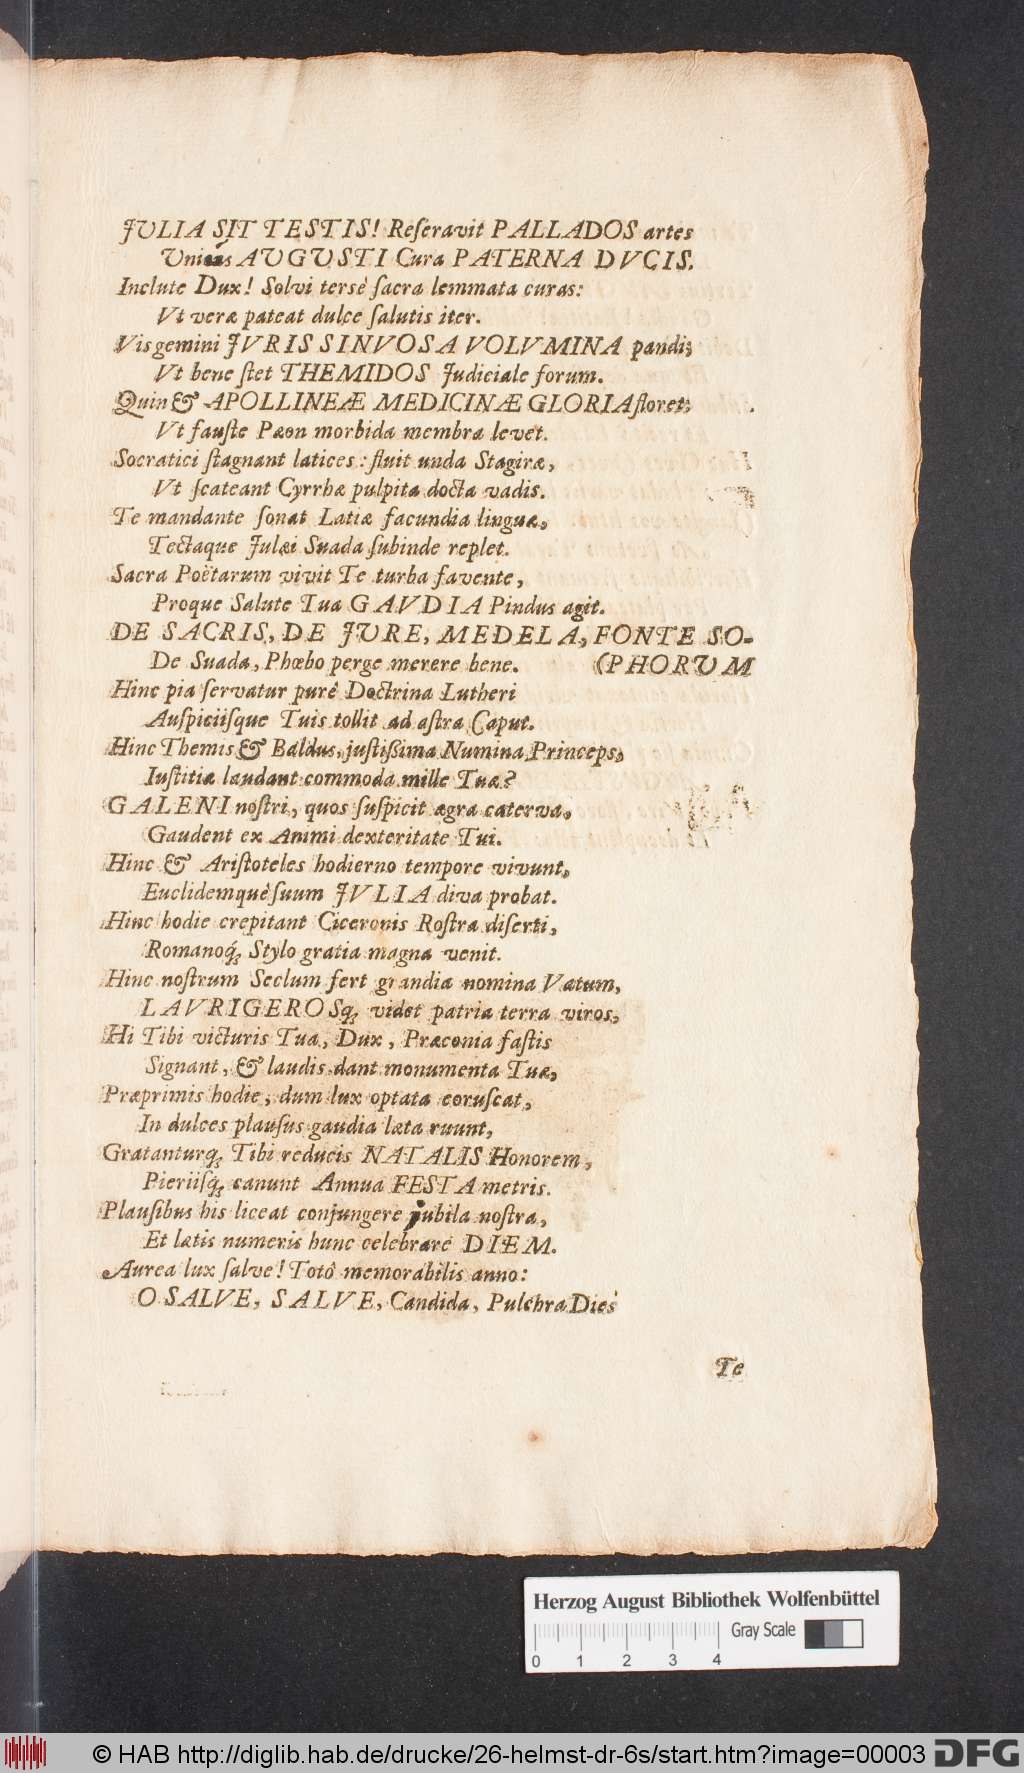 JULIA SIT TESTIS! Reſeravit PALLADOS artes
AUGUSTI Cura PATERNA DVCIS.
Inclute Dux! Solvi tersè ſacra lemmata curas:
Ut veræ pateat dulce ſalutis iter.
Vis gemini JVRIS SINVOSA VOLVMINA pandi;
Vt bene ſtet THEMIDOS Judiciale forum.
Quin & APOLLINEÆ MEDICINÆ GLORIA floret;
Ut fauſte Pæon morbida membra levet.
Socratici ſtagnant latices: fluit unda Stagiræ,
Ut ſcateant Cyrrhæ pulpita docta vadis.
Te mandante ſonat Latiæ facundia linguæ,
Tectaque Julæi Suada ſubinde replet.
Sacra Poëtarum vivit Te turba favente,
Proque Salute Tua GAVDIA Pindus agit.
DE SACRIS, DE JURE, MEDELA, FONTE SO-
De Suada, Phœbo perge merere bene. (PHORUM
Hinc pia ſervatur purè Doctrina Lutheri
Auſpiciiſque Tuis tollit ad aſtra Caput.
Hinc Themis & Baldus, juſtißima Numina, Princeps,
Iuſtitiæ laudant commoda mille Tuæ?
GALENI noſtri, quos ſuſpicit ægra caterva,
Gaudent ex Animi dexteritate Tui.
Hinc & Ariſtoteles hodierno tempore vivunt,
Euclidemquè ſuum JVLIA diva probat.
Hinc hodie crepitant Ciceronis Roſtra diſerti,
Romanoq́; Stylo gratia magna venit.
Hinc noſtrum Seclum fert grandia nomina Vatum,
LAVRIGEROSq; videt patria terra viros,
Hi Tibi victuris Tua, Dux, Præconia faſtis
Signant, & laudis dant monumenta Tuæ,
Præprimis hodie, dum lux optata coruſcat,
In dulces plauſus gaudia læta ruunt,
Gratanturq; Tibi reducis NATALIS Honorem,
Pieriiſq́; canunt Annua FESTA metris.
Plauſibus his liceat conjungere jubila noſtra,
Et lætis numeris hunc celebrare DIEM.
Aurea lux ſalve! Totô memorabilis anno:
O SALVE, SALVE, Candida, Pulchra Dies
Te
Herzog August Bibliothek Wolfenbüttel
Gray Scale
0 1 2 3 4
© HAB http://diglib.hab.de/drucke/26-helmst-dr-6s/start.htm?image=00003 DFG